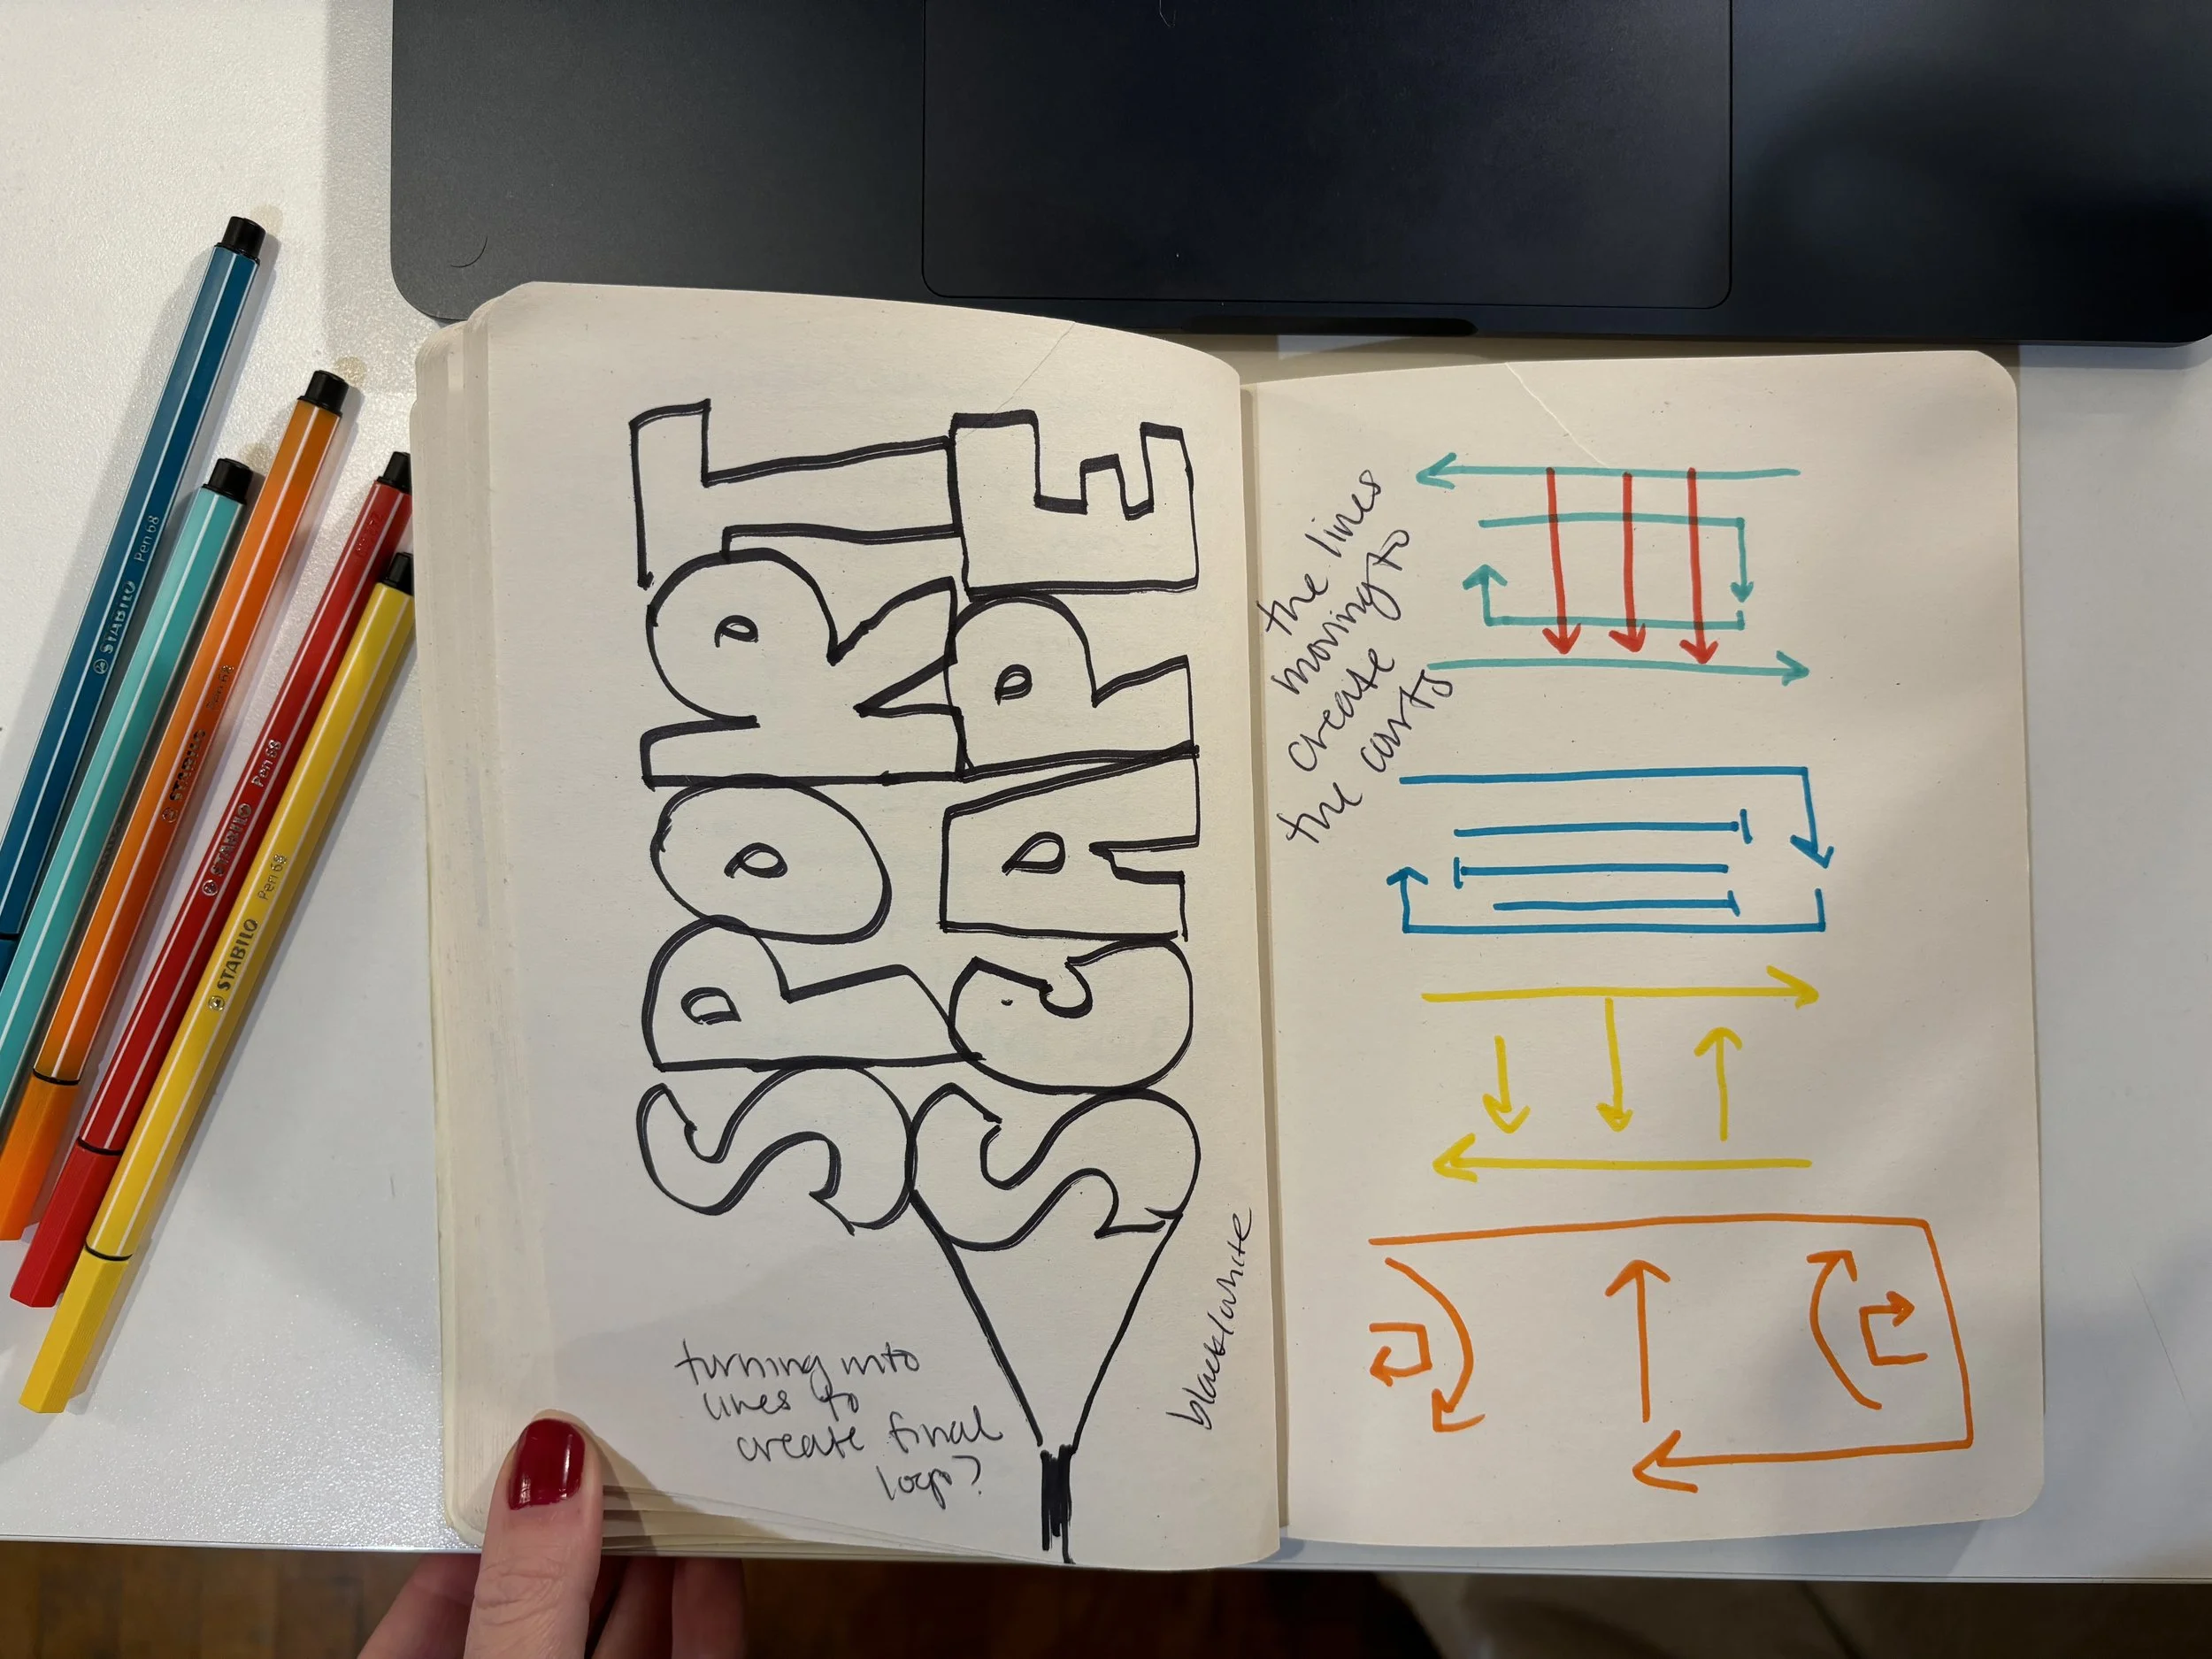 SPORT
SCAPE
turning into
lines to
create final
loop?
black/white
the lines
moving to
create
the
STABILO Pen 68
STABILO
STABILO Pen 68
STABILO Pen 68
STABILO Pen 68